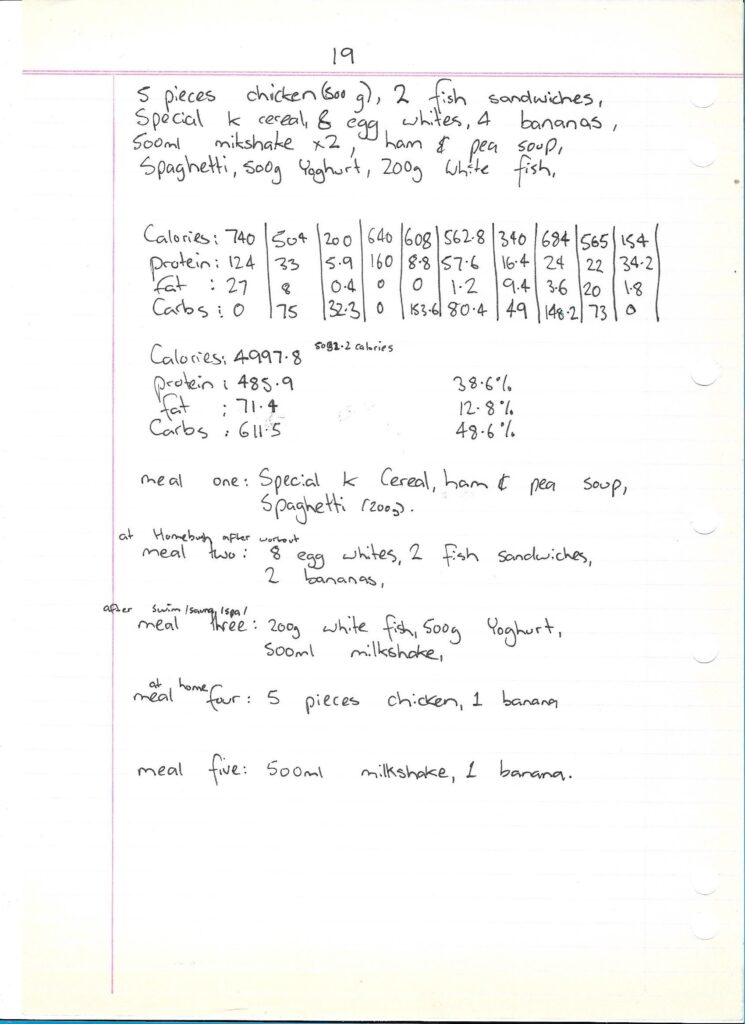 19
5 pieces chicken (500 g), 2 fish sandwiches,
Special k cereal, 8 egg whites, 4 bananas,
500ml mikshake x2, ham & pea soup,
Spaghetti, 500g Yoghurt, 200g white fish,
Calories: 740 | 504 | 200 | 640 | 608 | 562.8 | 340 | 684 | 565 | 154
protein: 124 | 33 | 5.9 | 160 | 8.8 | 57.6 | 16.4 | 24 | 22 | 34.2
fat : 27 | 8 | 0.4 | 0 | 0 | 1.2 | 9.4 | 3.6 | 20 | 1.8
Carbs : 0 | 75 | 32.3 | 0 | 153.6 | 80.4 | 49 | 148.2 | 73 | 0
Calories: 4997.8 5032.2 calories
protein : 485.9 38.6%
fat : 71.4 12.8%
Carbs : 611.5 48.6%
meal one: Special k Cereal, ham & pea soup,
Spaghetti (200g).
at Homebush after workout
meal two: 8 egg whites, 2 fish sandwiches,
2 bananas,
after swim/sauna/spa/
meal three: 200g white fish, 500g Yoghurt,
500ml milkshake,
at home
meal four: 5 pieces chicken, 1 banana
meal five: 500ml milkshake, 1 banana.